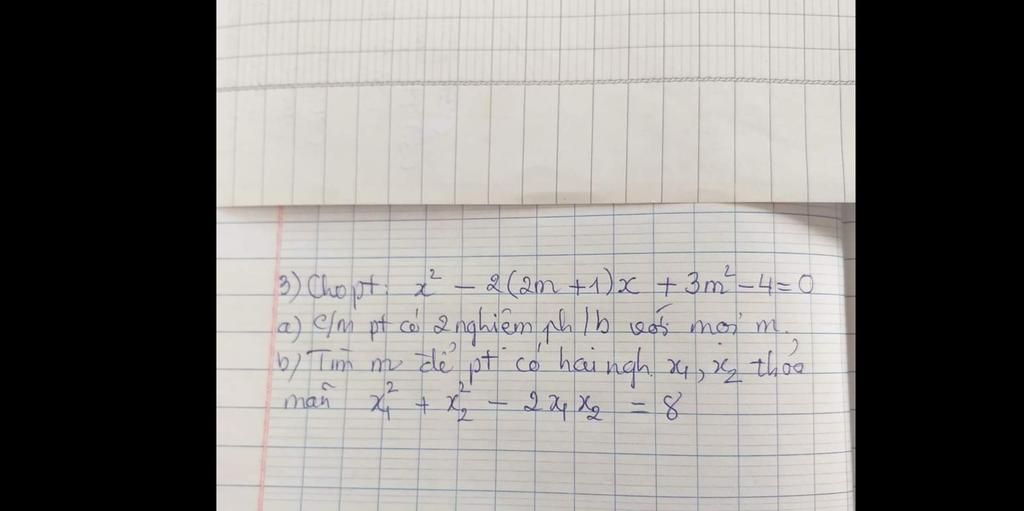 3) Cho pt: x² - 2(2m+1)x + 3m² - 4 = 0
a) C/m pt có 2 nghiệm ph/b với mọi m.
b) Tìm m để pt có hai ngh. x₁, x₂ thỏa
mãn x₁² + x₂² - 2x₁x₂ = 8